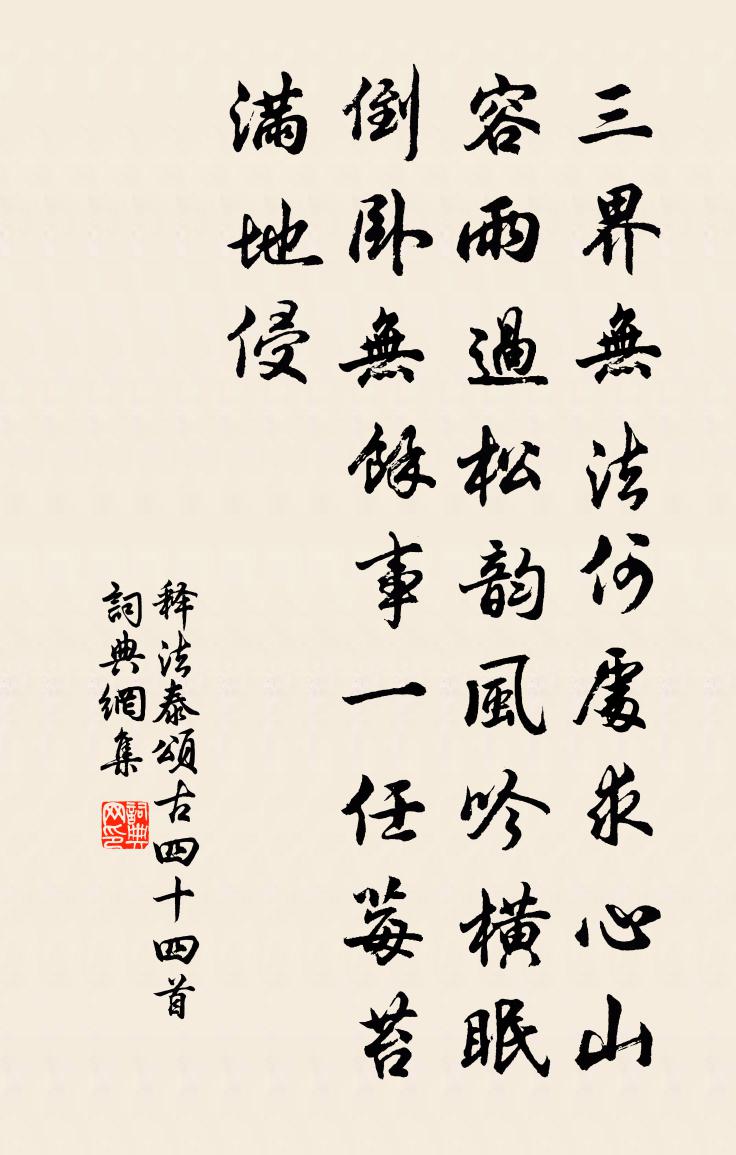 三界無法何處求心山
容雨過松韵風吟橫眠
倒卧無餘事一任莓苔
滿地侵
释法泰頌古四十四首
詞典網集
詞典网印